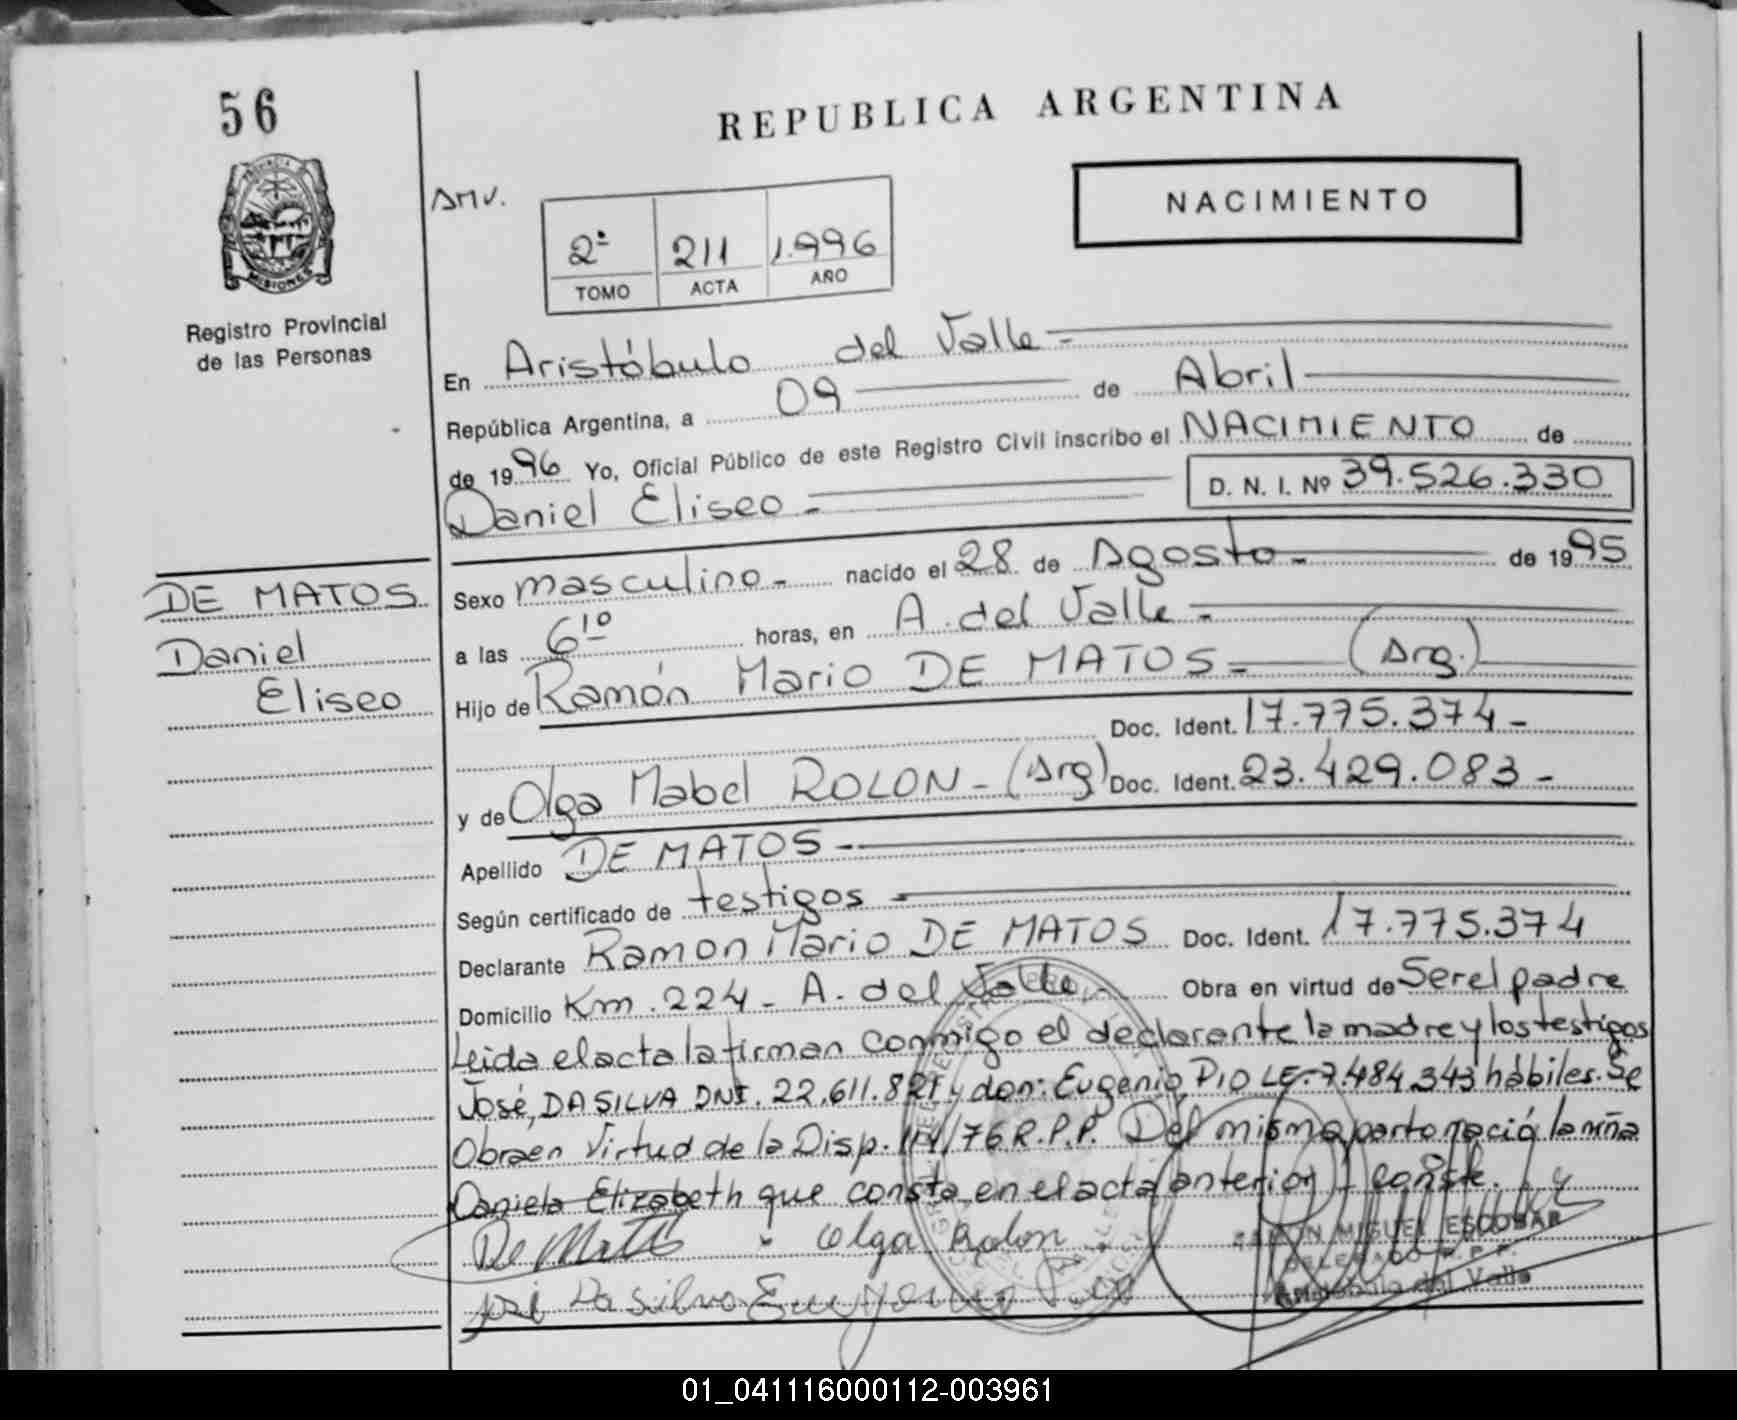 56
REPUBLICA ARGENTINA
PROVINCIA
MISIONES
AMV.
NACIMIENTO
2º 211 1.996
TOMO ACTA AÑO
Registro Provincial
de las Personas
En Aristóbulo del Valle -
República Argentina, a 09 de Abril
de 1996 Yo, Oficial Público de este Registro Civil inscribo el NACIMIENTO de
Daniel Eliseo - D. N. I. Nº 39.526.330
DE MATOS
Daniel
Eliseo
Sexo masculino - nacido el 28 de Agosto - de 1995
a las 6¹⁰ horas, en A. del Valle -
Hijo de Ramón Mario DE MATOS - (Arg.)
Doc. Ident. 17.775.374 -
y de Olga Mabel ROLON - (Arg) Doc. Ident. 23.429.083 -
Apellido DE MATOS -
Según certificado de testigos -
Declarante Ramon Mario DE MATOS Doc. Ident. 17.775.374
Domicilio Km. 224 - A. del Valle - Obra en virtud de Ser el padre
Leida el acta la firman conmigo el declarante la madre y los testigos
José, DA SILVA DNI. 22.611.821 y don: Eugenio PIO LE. 7.484.343 hábiles. Se
Obra en Virtud de la Disp. /76 R.P.P. Del mismo parto nació la niña
Daniela Elizabeth que consta en el acta anterior conste.
De Matos Olga Rolon
José Da Silva Eugenio Pio
MIGUEL ESCOBAR
DELEGADO R.P.P.
Aristóbulo del Valle
01_041116000112-003961